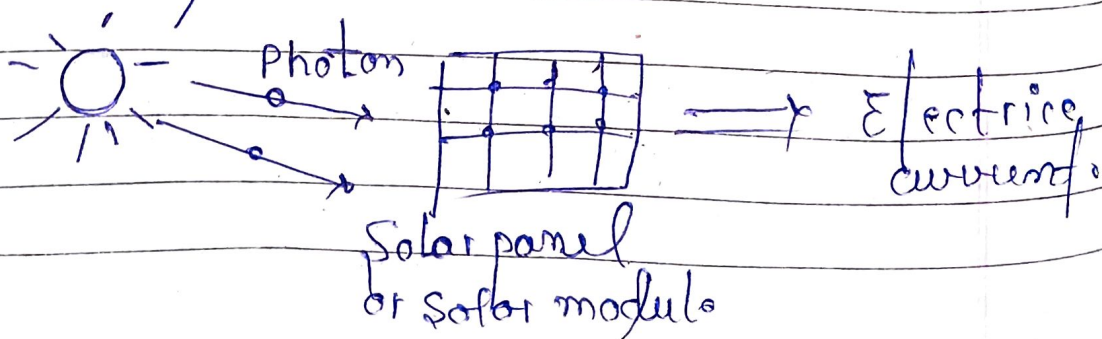 Photon
Electrice
current.
Solar panel
or Solar module